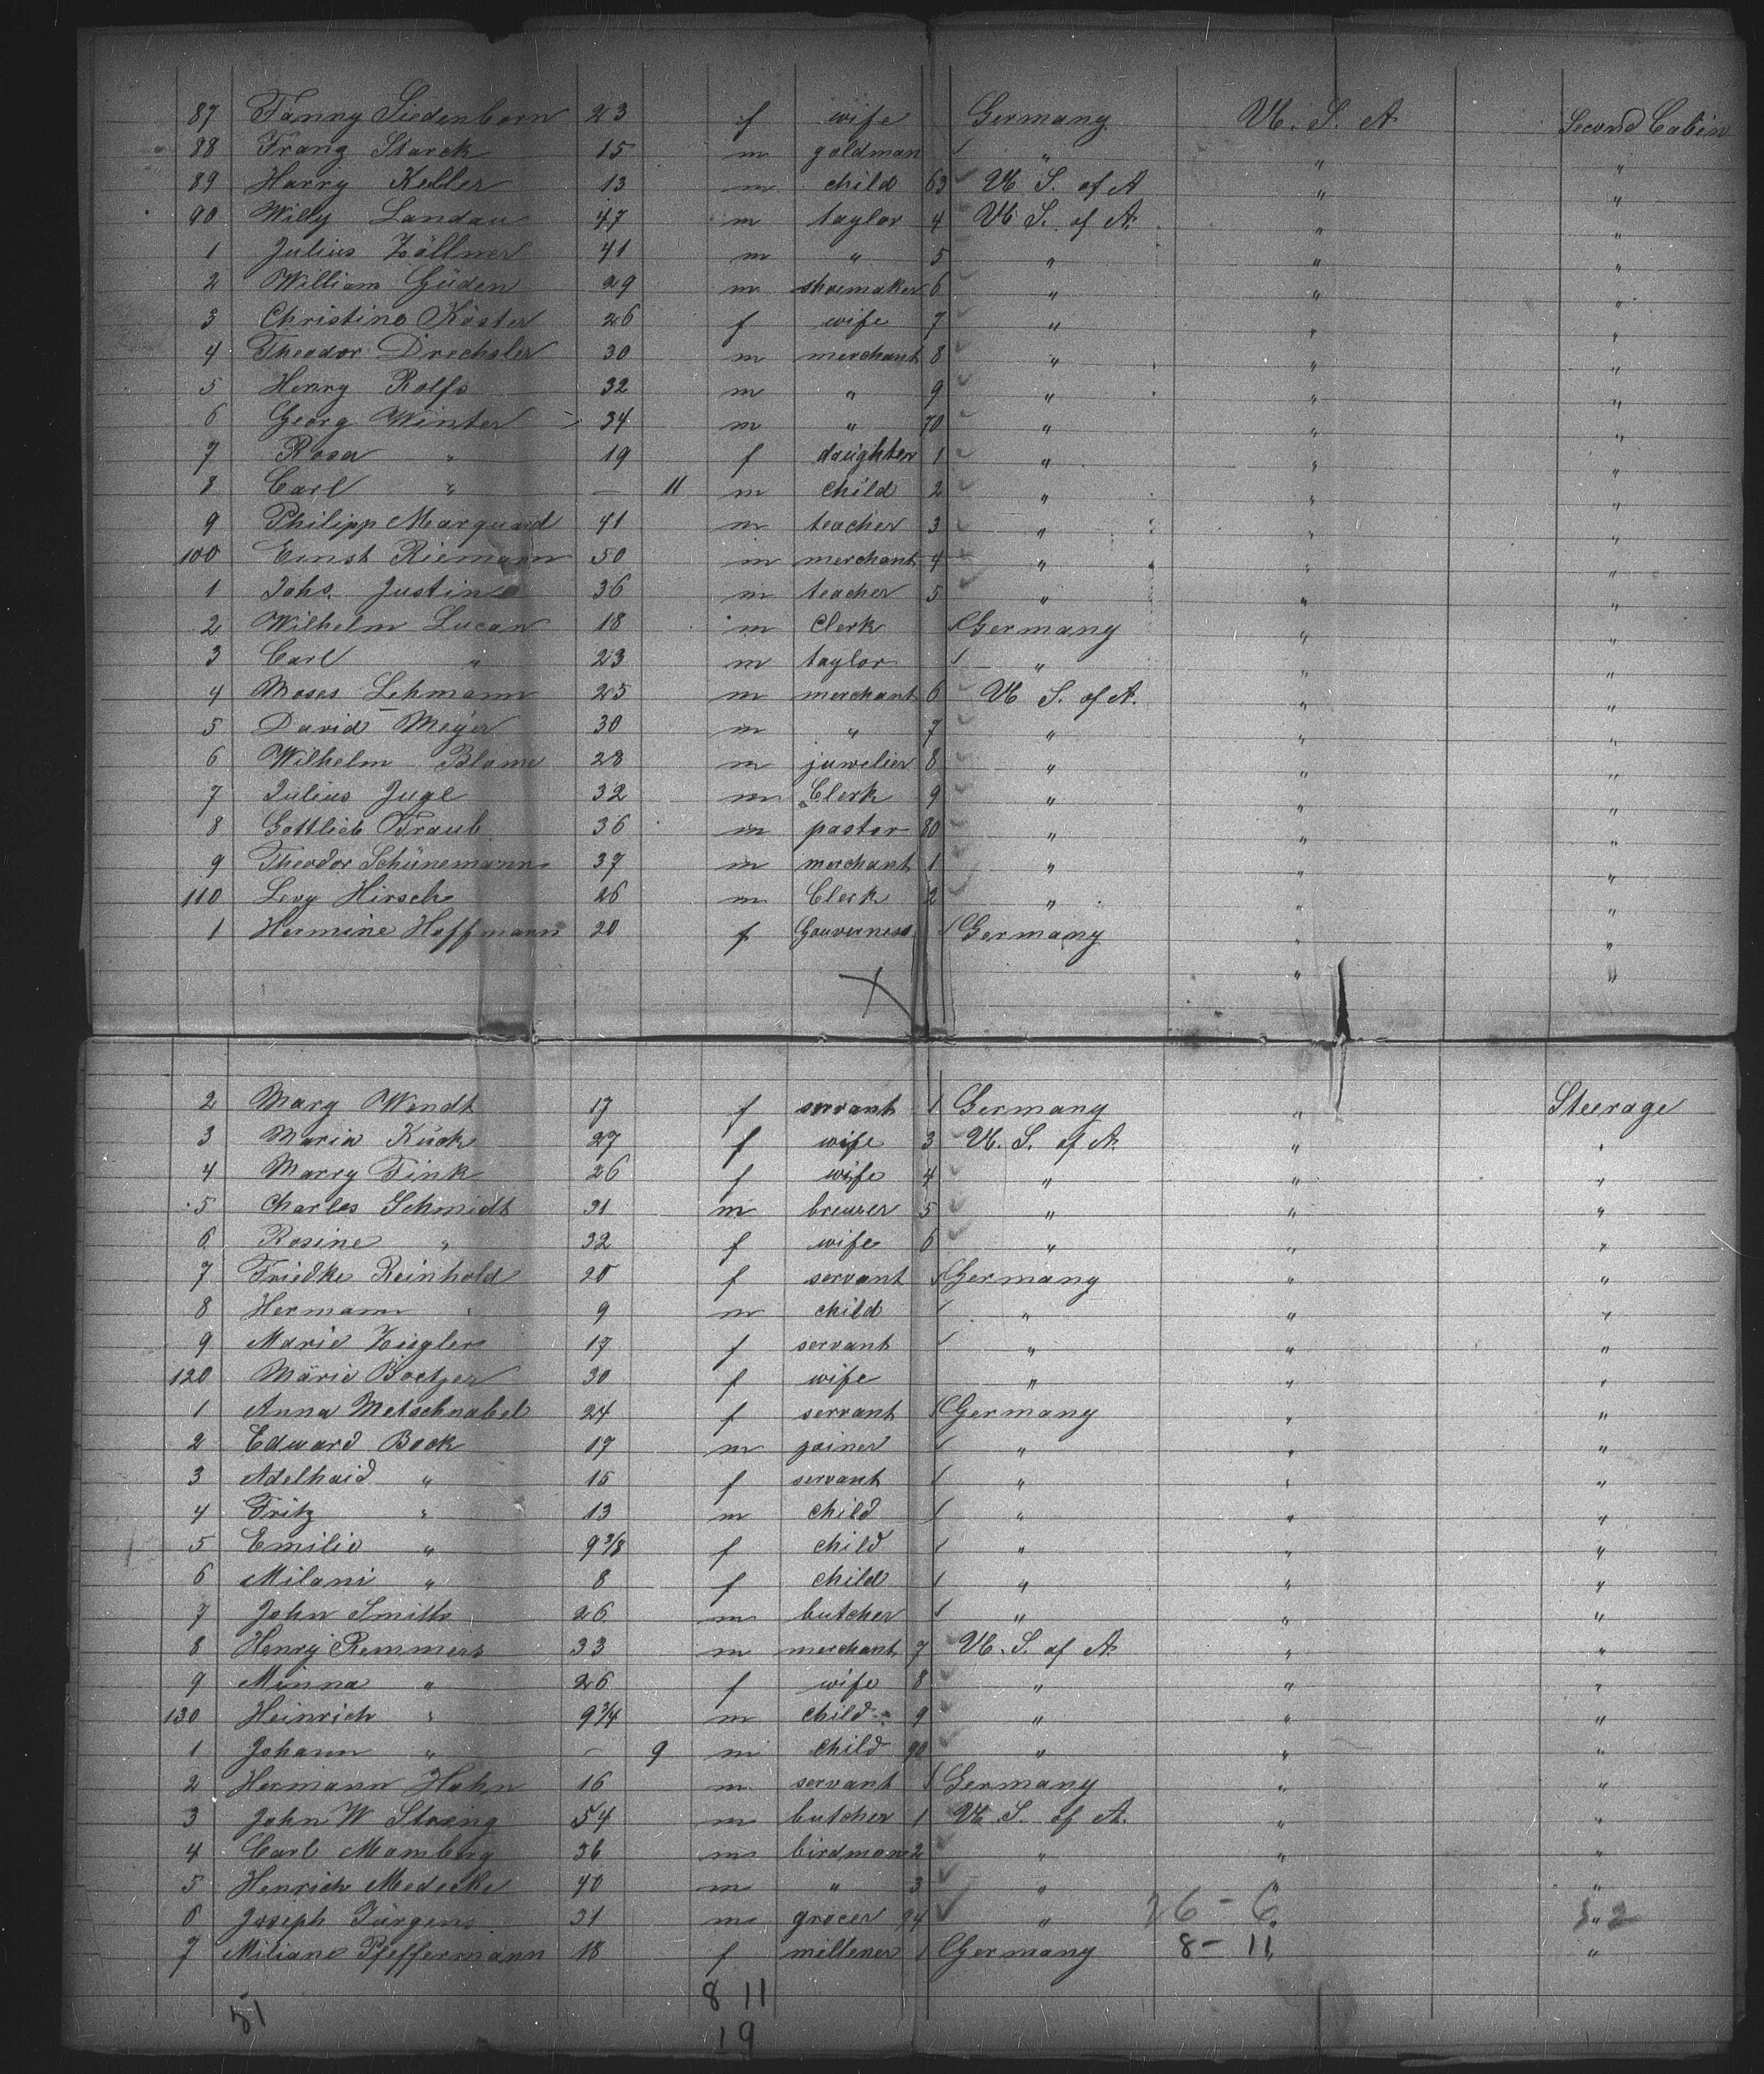 87 Fanny Siedenborn 23 f wife Germany U. S. A. Second Cabin
88 Franz Starck 15 m goldman " " "
89 Harry Keller 13 m child 63 U. S. of A " "
90 Willy Landau 47 m taylor 4 U. S. of A. " "
1 Julius Zöllner 41 m " 5 " " "
2 William Güden 29 m shoemaker 6 " " "
3 Christine Köster 26 f wife 7 " " "
4 Theodor Drechsler 30 m merchant 8 " " "
5 Henry Rolfs 32 m " 9 " " "
6 Georg Winter 34 m " 70 " " "
7 Rosa " 19 f daughter 1 " " "
8 Carl " — 11 m child 2 " " "
9 Philipp Marquard 41 m teacher 3 " " "
100 Ernst Riemann 50 m merchant 4 " " "
1 Johs. Justin 36 m teacher 5 " " "
2 Wilhelm Lucan 18 m Clerk Germany " "
3 Carl " 23 m taylor " " "
4 Moses Lehmann 25 m merchant 6 U. S. of A. " "
5 David Meyer 30 m " 7 " " "
6 Wilhelm Blome 28 m juwelier 8 " " "
7 Julius Jugl 32 m Clerk 9 " " "
8 Gottlieb Traub 36 m pastor 80 " " "
9 Theodor Schünemann 37 m merchant 1 " " "
110 Levy Hirsch 26 m Clerk 2 " " "
1 Hermine Hoffmann 20 f Gouverness Germany " "
" "
2 Mary Wendt 17 f servant Germany " Steerage
3 Maria Kück 27 f wife 3 U. S. of A. " "
4 Marry Fink 26 f wife 4 " " "
5 Charles Schmidt 31 m breuer 5 " " "
6 Rosine " 32 f wife 6 " " "
7 Friedke Reinhold 20 f servant Germany " "
8 Hermann " 9 m child " " "
9 Marie Ziegler 17 f servant " " "
120 Marie Boetzer 30 f wife " " "
1 Anna Metschnabel 24 f servant Germany " "
2 Edward Bock 17 m joiner " " "
3 Adelhaid " 15 f servant " " "
4 Fritz " 13 m child " " "
5 Emilie " 9 3/8 f child " " "
6 Milani " 8 f child " " "
7 John Smith 26 m butcher " " "
8 Henry Remmers 33 m merchant 7 U. S. of A. " "
9 Minna " 26 f wife 8 " " "
130 Heinrich " 9 3/4 m child 9 " " "
1 Johann " — 9 m child 90 " " "
2 Hermann Hahn 16 m servant Germany " "
3 John W Stoeing 54 m butcher 1 U. S. of A. " "
4 Carl Momberg 36 m birdman 2 " " "
5 Henrich Medecke 40 m " 3 " " "
6 Joseph Jürgens 31 m grocer 94 " 26 - 6 "
7 Miliane Pfeffermann 18 f millener Germany 8 - 11 "
51 8 11
19